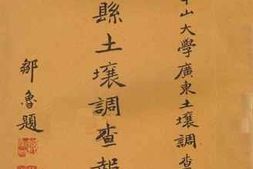 山大學廣東土壤調查
縣土壤調查報
鄒魯題